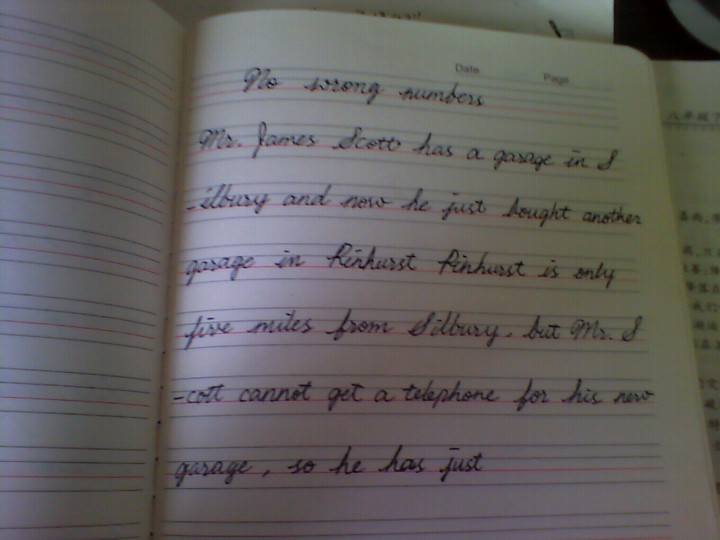 Date
Page
No wrong numbers
Mr. James Scott has a garage in S
-ilbury and now he just bought another
garage in Pinhurst Pinhurst is only
five miles from Silbury, but Mr. S
-cott cannot get a telephone for his new
garage, so he has just
八年级下